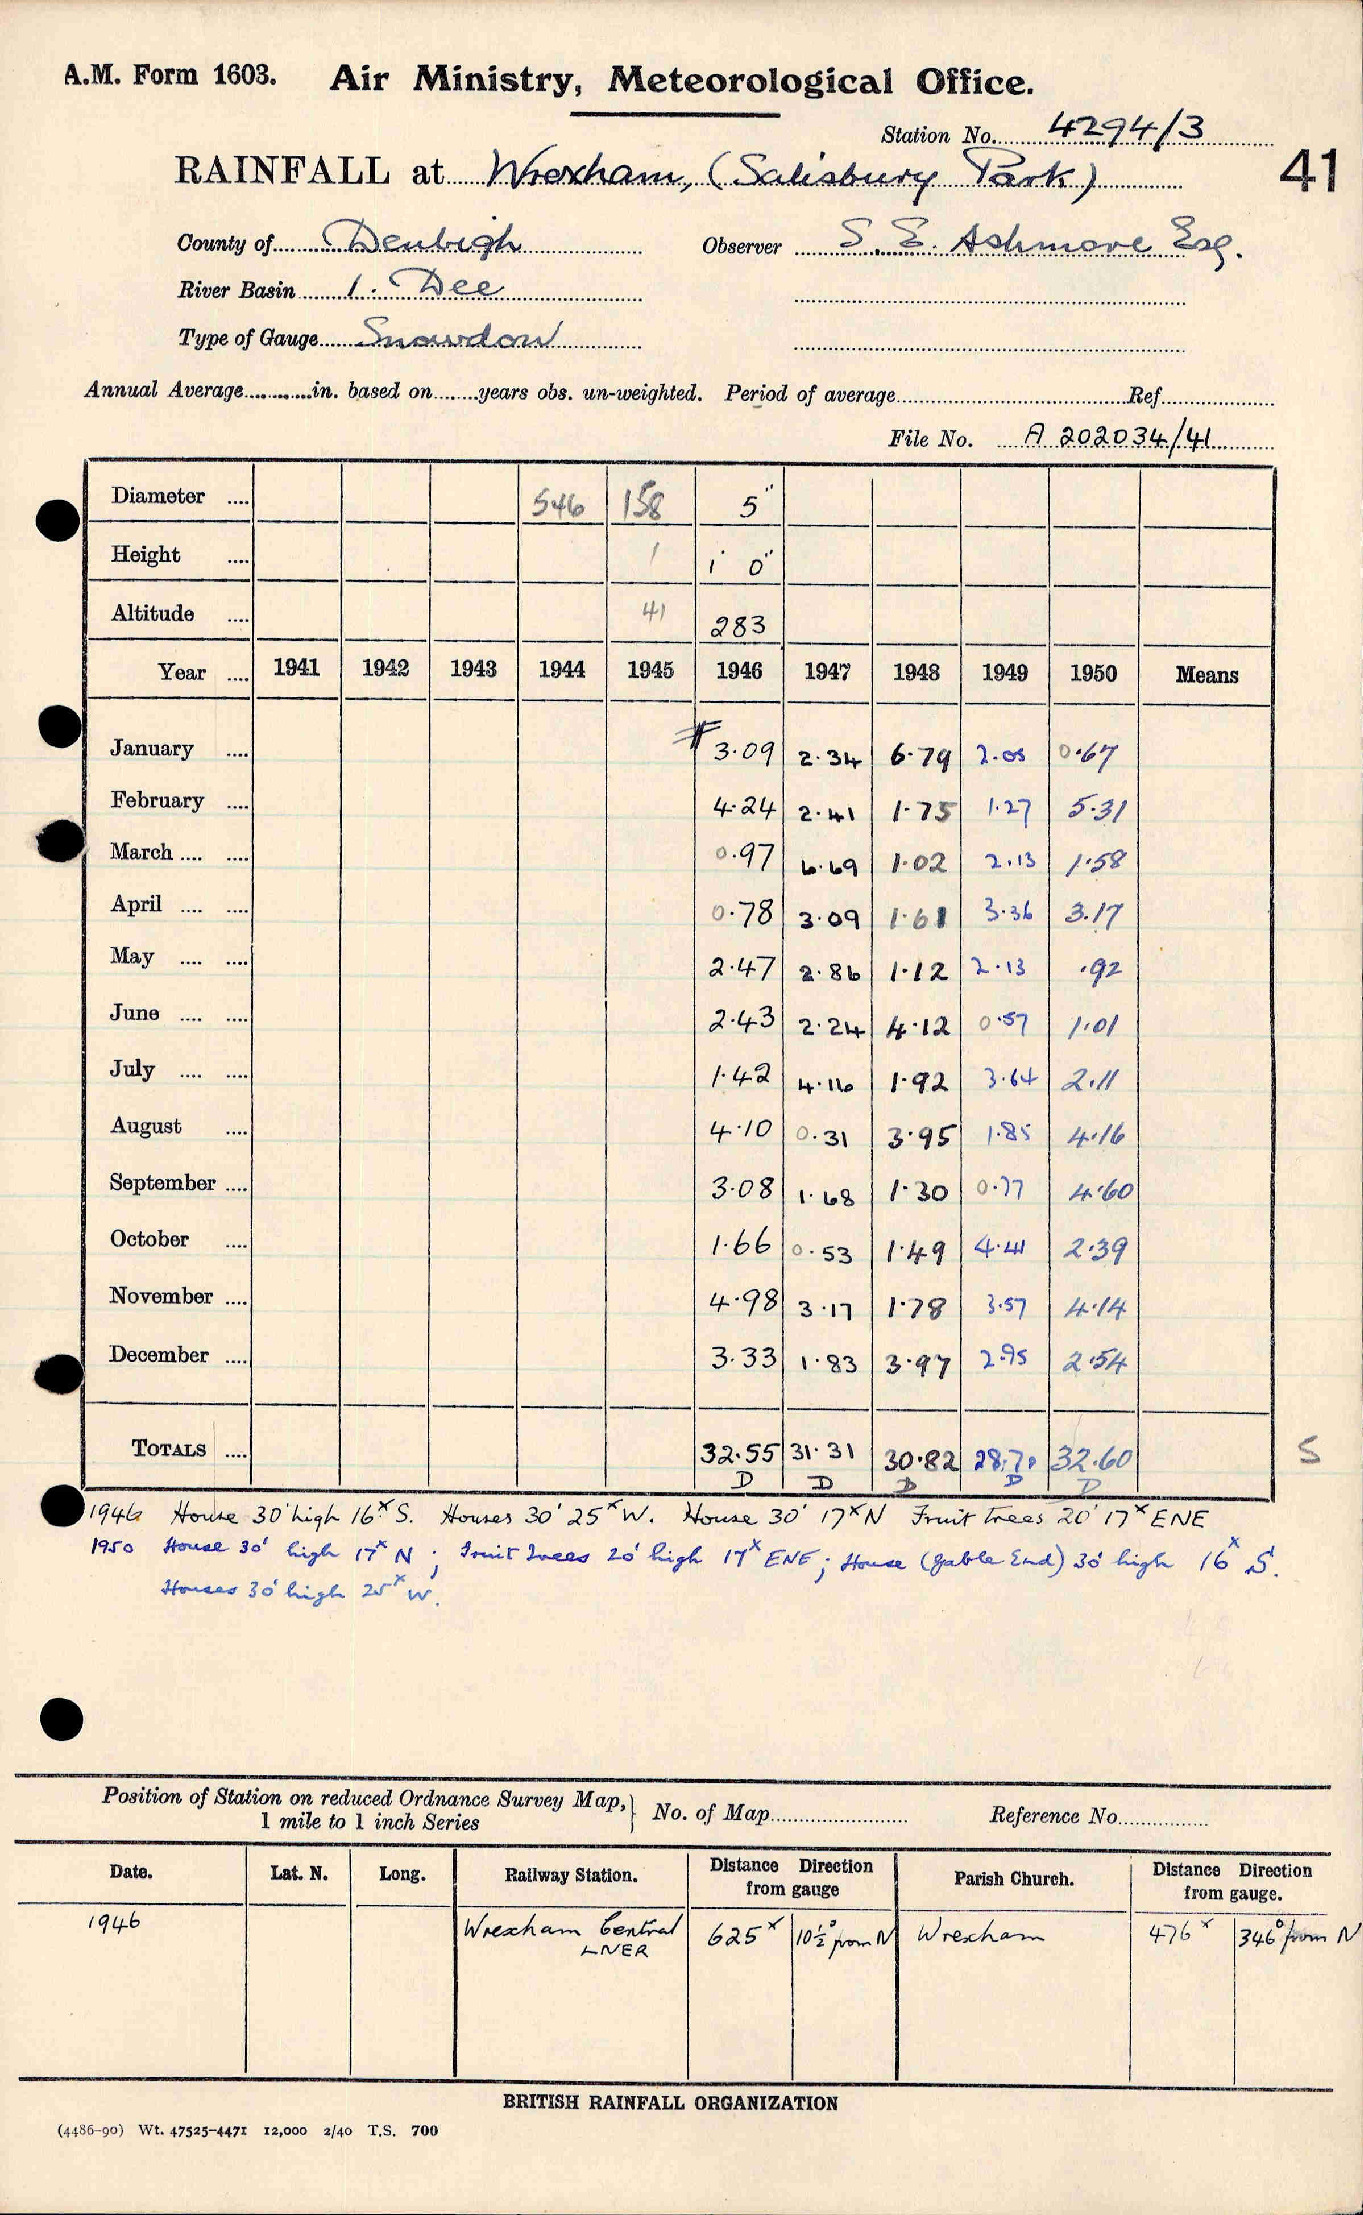 A.M. Form 1603. Air Ministry, Meteorological Office.
Station No. 4294/3
RAINFALL at Wrexham, (Salisbury Park)
41
County of Denbigh Observer S. E. Ashmore Esq.
River Basin 1. Dee
Type of Gauge Snowdon
Annual Average in. based on years obs. un-weighted. Period of average Ref.
File No. A 202034/41
Diameter 546 158 5"
Height 1 1' 0"
Altitude 41 283
Year 1941 1942 1943 1944 1945 1946 1947 1948 1949 1950 Means
January 3.09 2.34 6.79 2.05 0.67
February 4.24 2.41 1.75 1.27 5.31
March 0.97 6.69 1.02 2.13 1.58
April 0.78 3.09 1.61 3.36 3.17
May 2.47 2.86 1.12 2.13 .92
June 2.43 2.24 4.12 0.57 1.01
July 1.42 4.16 1.92 3.64 2.11
August 4.10 0.31 3.95 1.85 4.16
September 3.08 1.68 1.30 0.77 4.60
October 1.66 0.53 1.49 4.41 2.39
November 4.98 3.17 1.78 3.57 4.14
December 3.33 1.83 3.97 2.95 2.54
TOTALS 32.55 31.31 30.82 28.70 32.60
D D D D D
S
1946 House 30' high 16x S. Houses 30' 25x W. House 30' 17x N Fruit trees 20' 17x ENE
1950 House 30' high 17x N; Fruit Trees 20' high 17x ENE; House (gable End) 30' high 16x S.
Houses 30' high 25x W.
Position of Station on reduced Ordnance Survey Map, 1 mile to 1 inch Series } No. of Map Reference No.
Date. Lat. N. Long. Railway Station. Distance Direction from gauge Parish Church. Distance Direction from gauge.
1946 Wrexham Central LNER 625x 10½° from N Wrexham 476x 346° from N
BRITISH RAINFALL ORGANIZATION
(4486-90) Wt. 47525-4471 12,000 2/40 T.S. 700